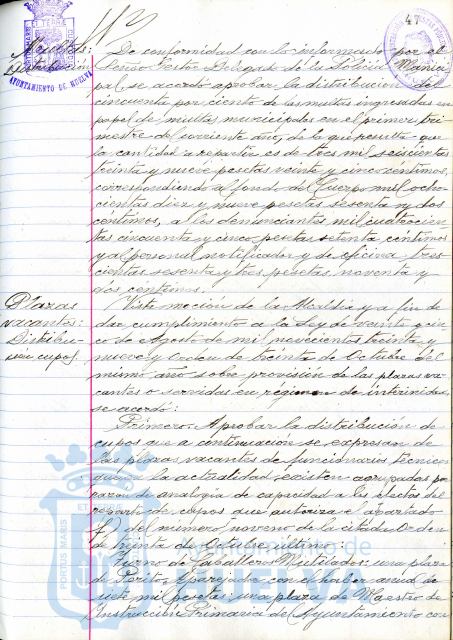 47
AYUNTAMIENTO DE HUELVA
Multas:
Distribución
De conformidad con lo informado por el
Señor Gestor Delegado de la Policía Munici-
pal, se acordó aprobar la distribución del
cincuenta por ciento de las multas ingresadas en
papel de multas municipales en el primer tri-
mestre del corriente año, de lo que resulta que
la cantidad a repartir es de tres mil seiscientas
treinta y nueve pesetas veinte y cinco centimos,
correspondiendo al fondo del Cuerpo mil ocho-
cientas diez y nueve pesetas sesenta y dos
céntimos, a los denunciantes mil cuatrocien-
tas cincuenta y cinco pesetas setenta céntimos
y al personal notificador y de oficina, tres-
cientas sesenta y tres pesetas noventa y
dos centimos.
Plazas
vacantes:
Distribu-
ción cupos.
Vista moción de la Alcaldía y a fin de
dar cumplimiento a la Ley de veinte y cin-
co de Agosto de mil novecientos treinta y
nueve y Orden de treinta de Octubre del
mismo año sobre provisión de las plazas va-
cantes o servidas en régimen de interinidad,
se acordó:
Primero: Aprobar la distribución de
cupos que a continuación se expresan de
las plazas vacantes de funcionarios técnicos
que en la actualidad existen agrupadas por
razon de analogía de capacidad a los efectos del
reparto de cupos que autoriza el apartado
f) del número noveno de la citada Orden
de treinta de Octubre último:
Turno de Caballeros Mutilados: una plaza
de Perito Aparejador con el haber anual de
siete mil pesetas: una plaza de Maestro de
Instrucción Primaria de Ayuntamiento con
PORTUS MARIS
Ayuntamiento de
HUELVA